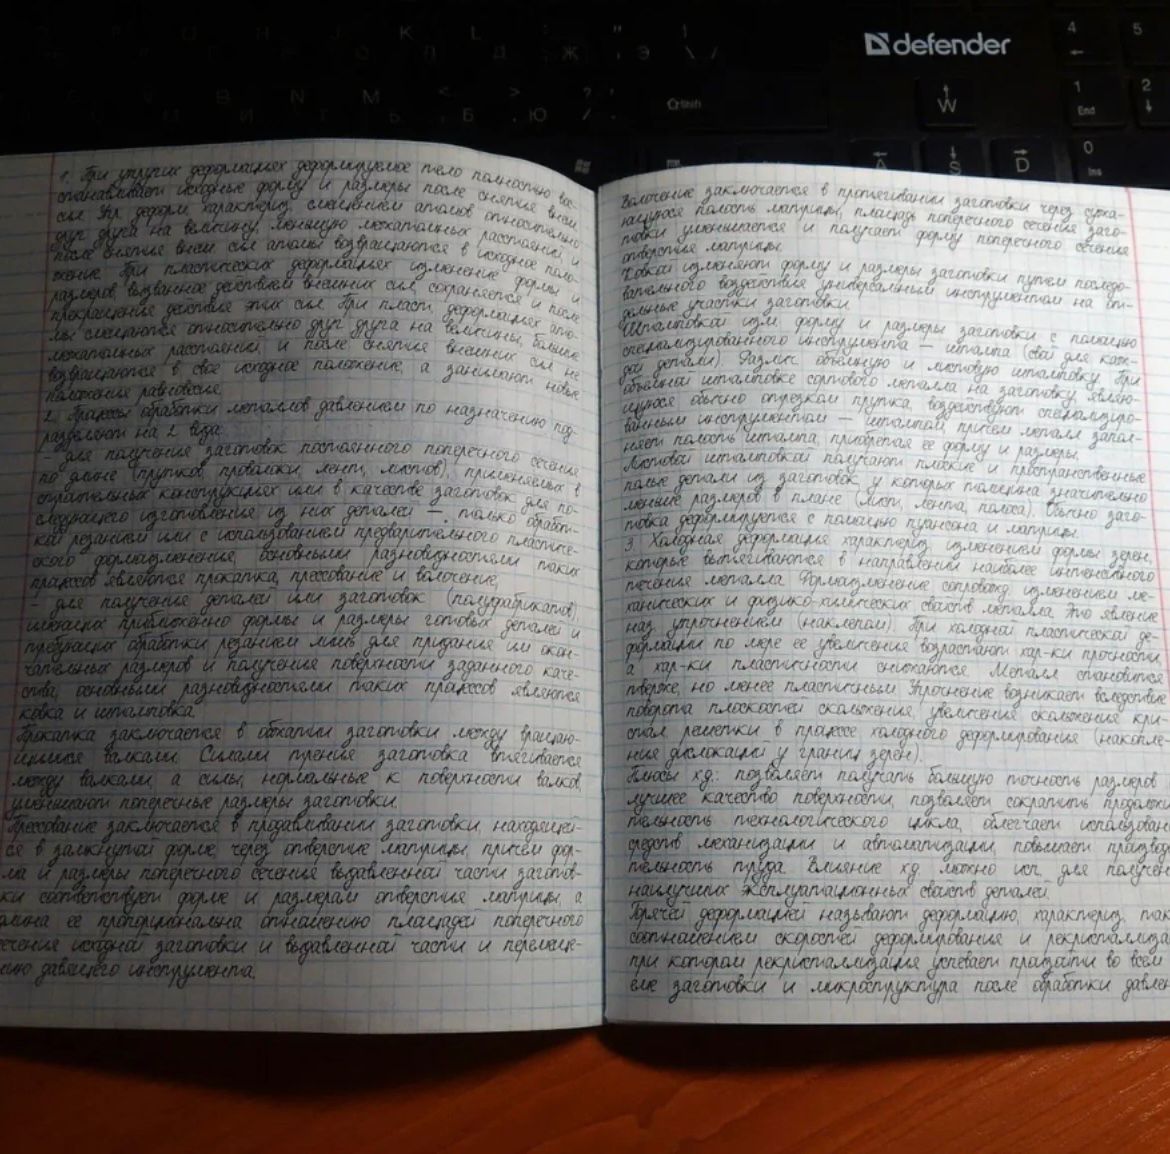 defender
1. При упругих деформациях деформируемое тело полностью вос-
станавливает исходные форму и размеры после снятия внеш.
сил. Упр. деформ. характериз. смещением атомов относительно
друг друга на величину, меньшую межатомных расстояний, и
после снятия внеш. сил атомы возвращаются в исходное поло-
жение. При пластических деформациях изменение формы и
размеров, вызванное действием внешних сил, сохраняется и после
прекращения действия этих сил. При пласт. деформациях ато-
мы смещаются относительно друг друга на величины, больше
межатомных расстояний, и после снятия внешних сил не
возвращаются в свое исходное положение, а занимают новые
положения равновесия.
2. Процессы обработки металлов давлением по назначению под-
разделяют на 2 вида:
- для получения заготовок постоянного поперечного сечения
по длине (прутков, проволоки, лент, листов), применяемых в
строительных конструкциях или в качестве заготовок для по-
следующего изготовления из них деталей – только обработ-
кой резанием или с использованием предварительного пластиче-
ского формоизменения, основными разновидностями таких
процессов являются прокатка, прессование и волочение;
- для получения деталей или заготовок (полуфабрикатов),
имеющих приближенно формы и размеры готовых деталей и
требующих обработки резанием лишь для придания им окон-
чательных размеров и получения поверхности заданного каче-
ства; основными разновидностями таких процессов являются
ковка и штамповка.
Прокатка заключается в обжатии заготовки между вращаю-
щимися валками. Силами трения заготовка втягивается
между валками, а силы, нормальные к поверхности валков,
уменьшают поперечные размеры заготовки.
Прессование заключается в продавливании заготовки, находящей-
ся в замкнутой форме, через отверстие матрицы, причем фор-
ма и размеры поперечного сечения выдавленной части заготов-
ки соответствует форме и размерам отверстия матрицы, а
длина ее пропорциональна отношению площадей поперечного
сечения исходной заготовки и выдавленной части и перемеще-
нию давящего инструмента.
Волочение заключается в протягивании заготовки через сужа-
ющуюся полость матрицы; площадь поперечного сечения заго-
товки уменьшается и получает форму поперечного сечения
отверстия матрицы.
Ковкой изменяют форму и размеры заготовки путем последо-
вательного воздействия универсальным инструментом на от-
дельные участки заготовки.
Штамповкой изм. форму и размеры заготовки с помощью
специализированного инструмента – штампа (свой для каж-
дой детали). Различ. объемную и листовую штамповку. При
объемной штамповке сортового металла на заготовку, являю-
щуюся обычно отрезком прутка, воздействуют специализиро-
ванным инструментом – штампом, причем металл запол-
няет полость штампа, приобретая ее форму и размеры.
Листовой штамповкой получают плоские и пространственные
полые детали из заготовок, у которых толщина значительно
меньше размеров в плане (лист, лента, полоса). Обычно заго-
товка деформируется с помощью пуансона и матрицы.
3. Холодная деформация характериз. изменением формы зерен,
которые вытягиваются в направлении наиболее интенсивного
течения металла. Формоизменение сопровожд. изменением ме-
ханических и физико-химических свойств металла. Это явление
наз. упрочнением (наклепом). При холодной пластической де-
формации по мере ее увеличения возрастают хар-ки прочности,
а хар-ки пластичности снижаются. Металл становится
тверже, но менее пластичным. Упрочнение возникает вследствие
поворота плоскостей скольжения, увеличения скольжения кри-
стал. решетки в процессе холодного деформирования (накопле-
ния дислокаций у границ зерен).
Плюсы хд: позволяет получать большую точность размеров
лучшее качество поверхности, позволяет сократить продолжи
тельность технологического цикла, облегчает использован
средств механизации и автоматизации, повышает производ
тельность труда. Влияние хд можно исп. для получен
наилучших эксплуатационных свойств деталей.
Горячей деформацией называют деформацию, характериз. так
соотношением скоростей деформирования и рекристаллиза
при котором рекристаллизация успевает произойти во всем
еме заготовки и микроструктура после обработки давлен